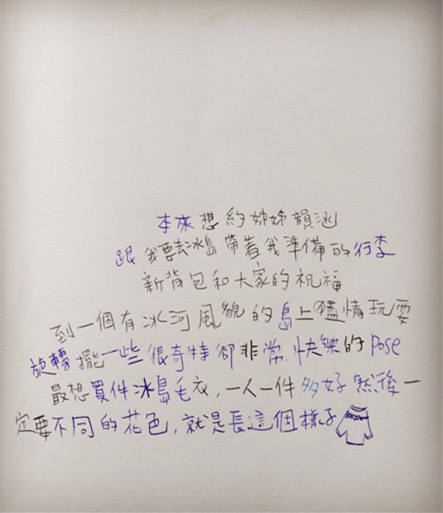 本來想約姊姊韻涵
跟我要去冰島帶着我準備的行李
新背包和大家的祝福
到一個有冰河風貌的島上儘情玩耍
旋轉擺一些很奇特卻非常快樂的pose
最想買件冰島毛衣,一人一件多好然後一
定要不同的花色,就是長這個樣子